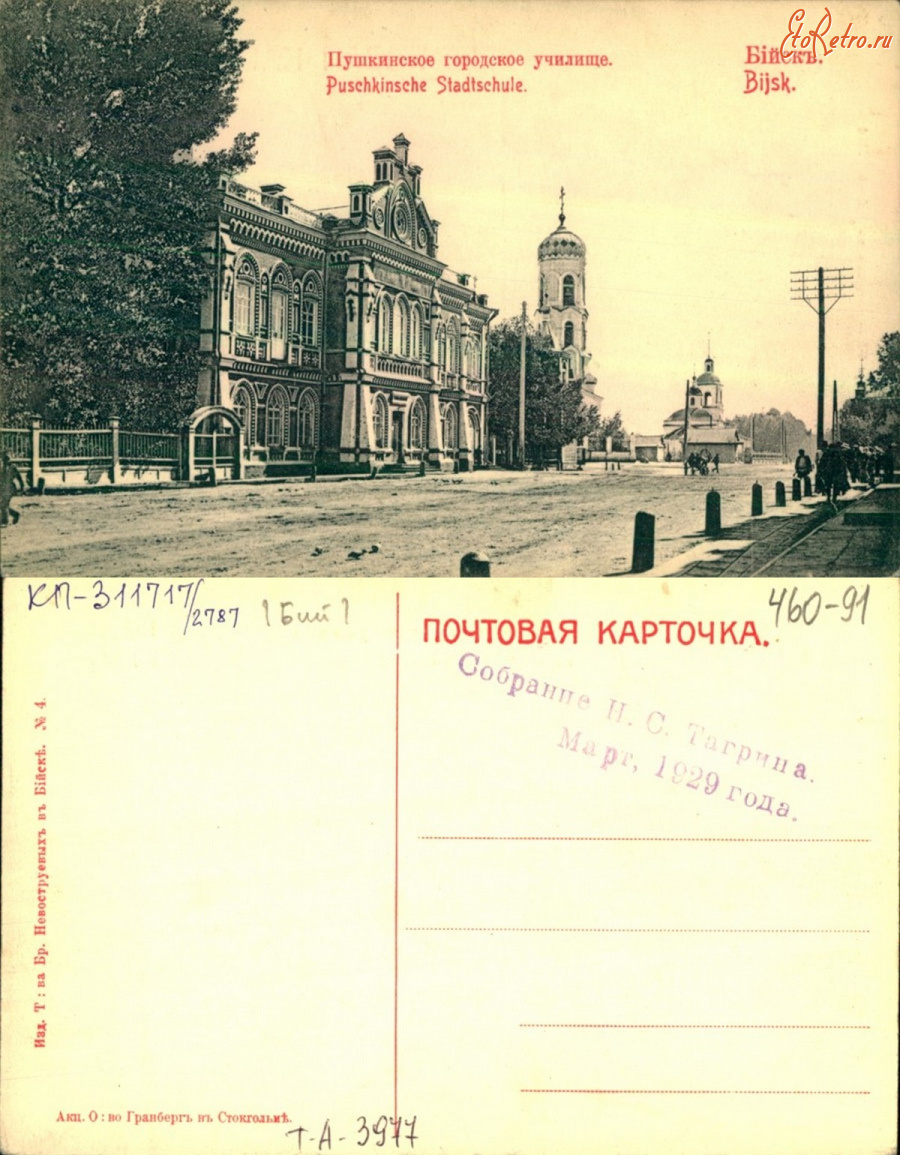 Пушкинское городское училище.
Puschkinsche Stadtschule.
EtoRetro.ru
Бійскъ.
Bijsk.
КП-311717/2787
[Бий]
460-91
ПОЧТОВАЯ КАРТОЧКА.
Собрание Н. С. Тагрина.
Март, 1929 года.
Изд. Т : ва Бр. Невоструевыхъ въ Бійскѣ. № 4.
Акц. О : во Гранбергъ въ Стокгольмѣ.
Т-А-3977